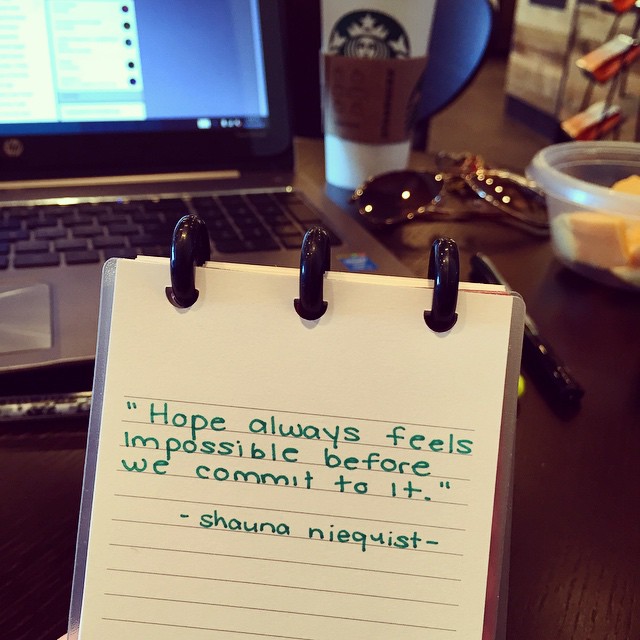 " Hope always feels
impossible before
we commit to it."
- shauna niequist-